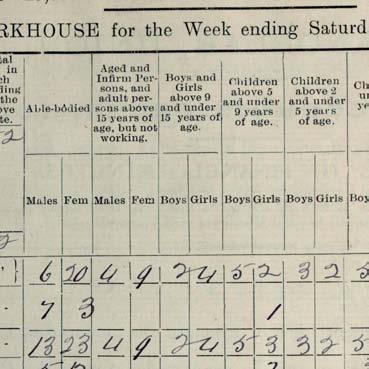 RKHOUSE for the Week ending Saturd
tal
in
ch
ding
the
ve
te.
Able-bodied
Aged and
Infirm Per-
sons, and
adult per-
sons above
15 years of
age, but not
working.
Boys and
Girls
above 9
and under
15 years of
age.
Children
above 5
and under
9 years
of age.
Children
above 2
and under
5 years
of age.
Ch
un
ye
2
Males Fem Males Fem Boys Girls Boys Girls Boys Girls Bo
2
6 20 4 9 2 4 5 2 3 2 5
7 3 1
13 23 4 9 2 4 5 3 3 2 5